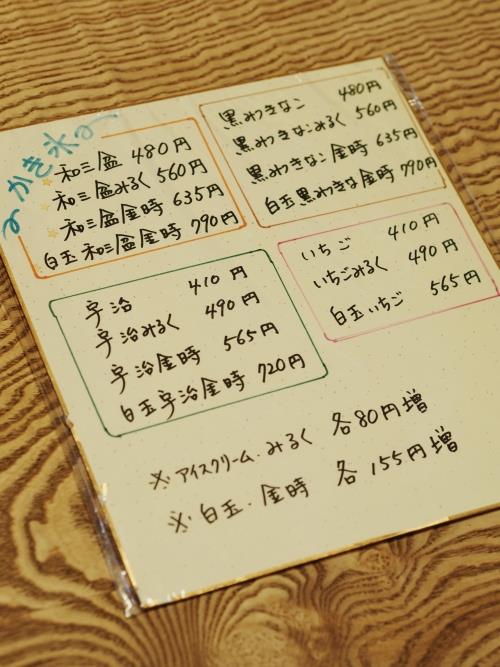 かき氷
和三盆 480円
和三盆みるく 560円
和三盆金時 635円
白玉和三盆金時 790円
黒みつきなこ 480円
黒みつきなこみるく 560円
黒みつきなこ金時 635円
白玉黒みつきな金時 790円
宇治 410円
宇治みるく 490円
宇治金時 565円
白玉宇治金時 720円
いちご 410円
いちごみるく 490円
白玉いちご 565円
※アイスクリーム・みるく 各80円増
※白玉・金時 各155円増